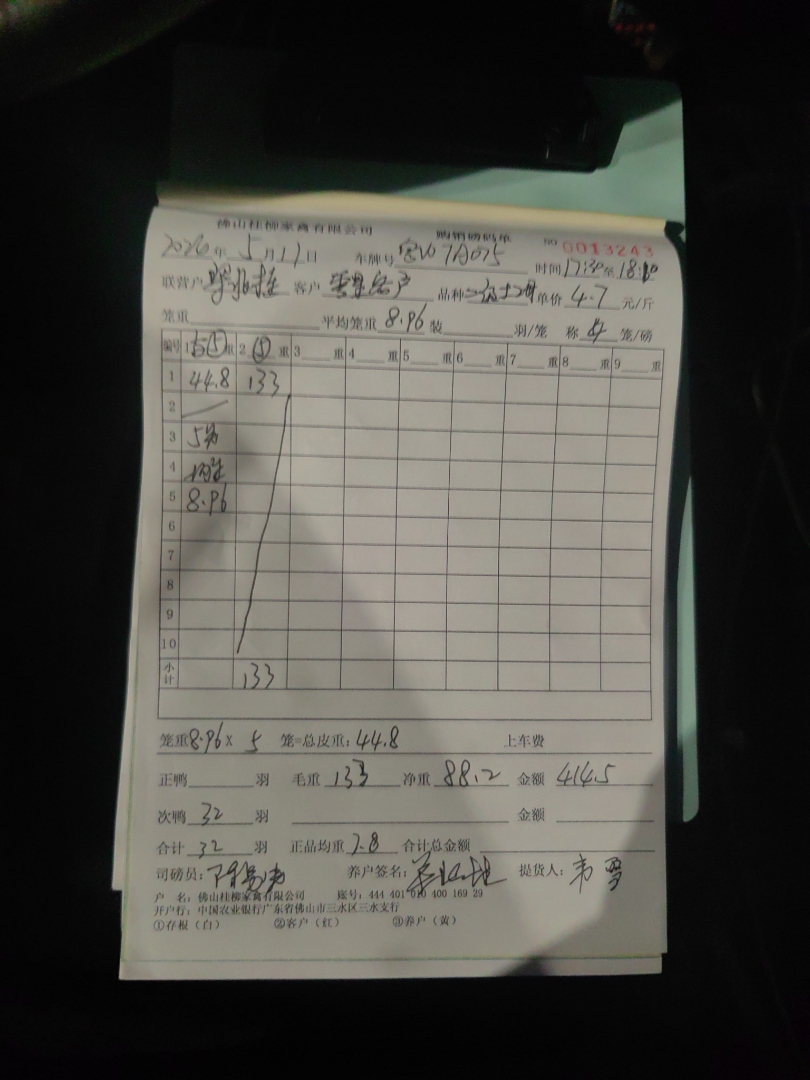 佛山桂柳家禽有限公司 购销磅码单 № 0013243
2026年5月17日 车牌号 7A075 时间17:30至18:10
联营户 客户 品种 单价 4.7 元/斤
笼重 平均笼重 8.96 装 羽/笼 称 笼/磅
编号 1 ⑤重 2 ⑤重 3 重 4 重 5 重 6 重 7 重 8 重 9 重
1 44.8 133
2
3 5
4
5 8.96
6
7
8
9
10
小计 133
笼重8.96× 5 笼=总皮重:44.8 上车费
正鸭 羽 毛重 133 净重 88.2 金额 414.5
次鸭 32 羽 金额
合计 32 羽 正品均重 2.8 合计总金额
司磅员: 养户签名: 提货人:
户 名:佛山桂柳家禽有限公司 账号:444 401 010 400 169 29
开户行:中国农业银行广东省佛山市三水区三水支行
①存根(白) ②客户(红) ③养户(黄)